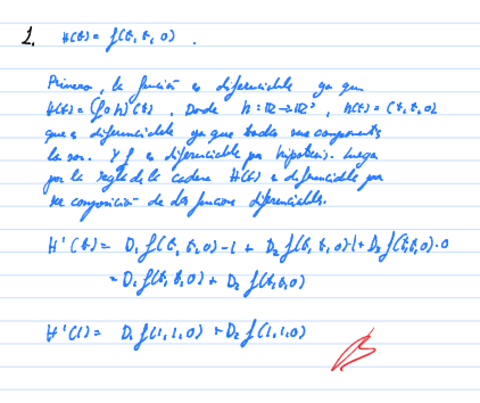 1. H(t) = f(t, t, 0) .
Primero, la función es diferenciable ya que
H(t) = (f∘h)(t) . Donde h: ℝ→ℝ³, h(t) = (t, t, 0)
que es diferenciable ya que todas sus components
lo son. Y f es diferenciable por hipotesis. Luego
por la regla de la cadena H(t) es diferenciable por
ser composición de dos funciones diferenciables.
H'(t) = D₁ f(t, t, 0)·1 + D₂ f(t, t, 0)·1 + D₃ f(t, t, 0)·0
= D₁ f(t, t, 0) + D₂ f(t, t, 0)
H'(1) = D₁ f(1, 1, 0) + D₂ f(1, 1, 0)